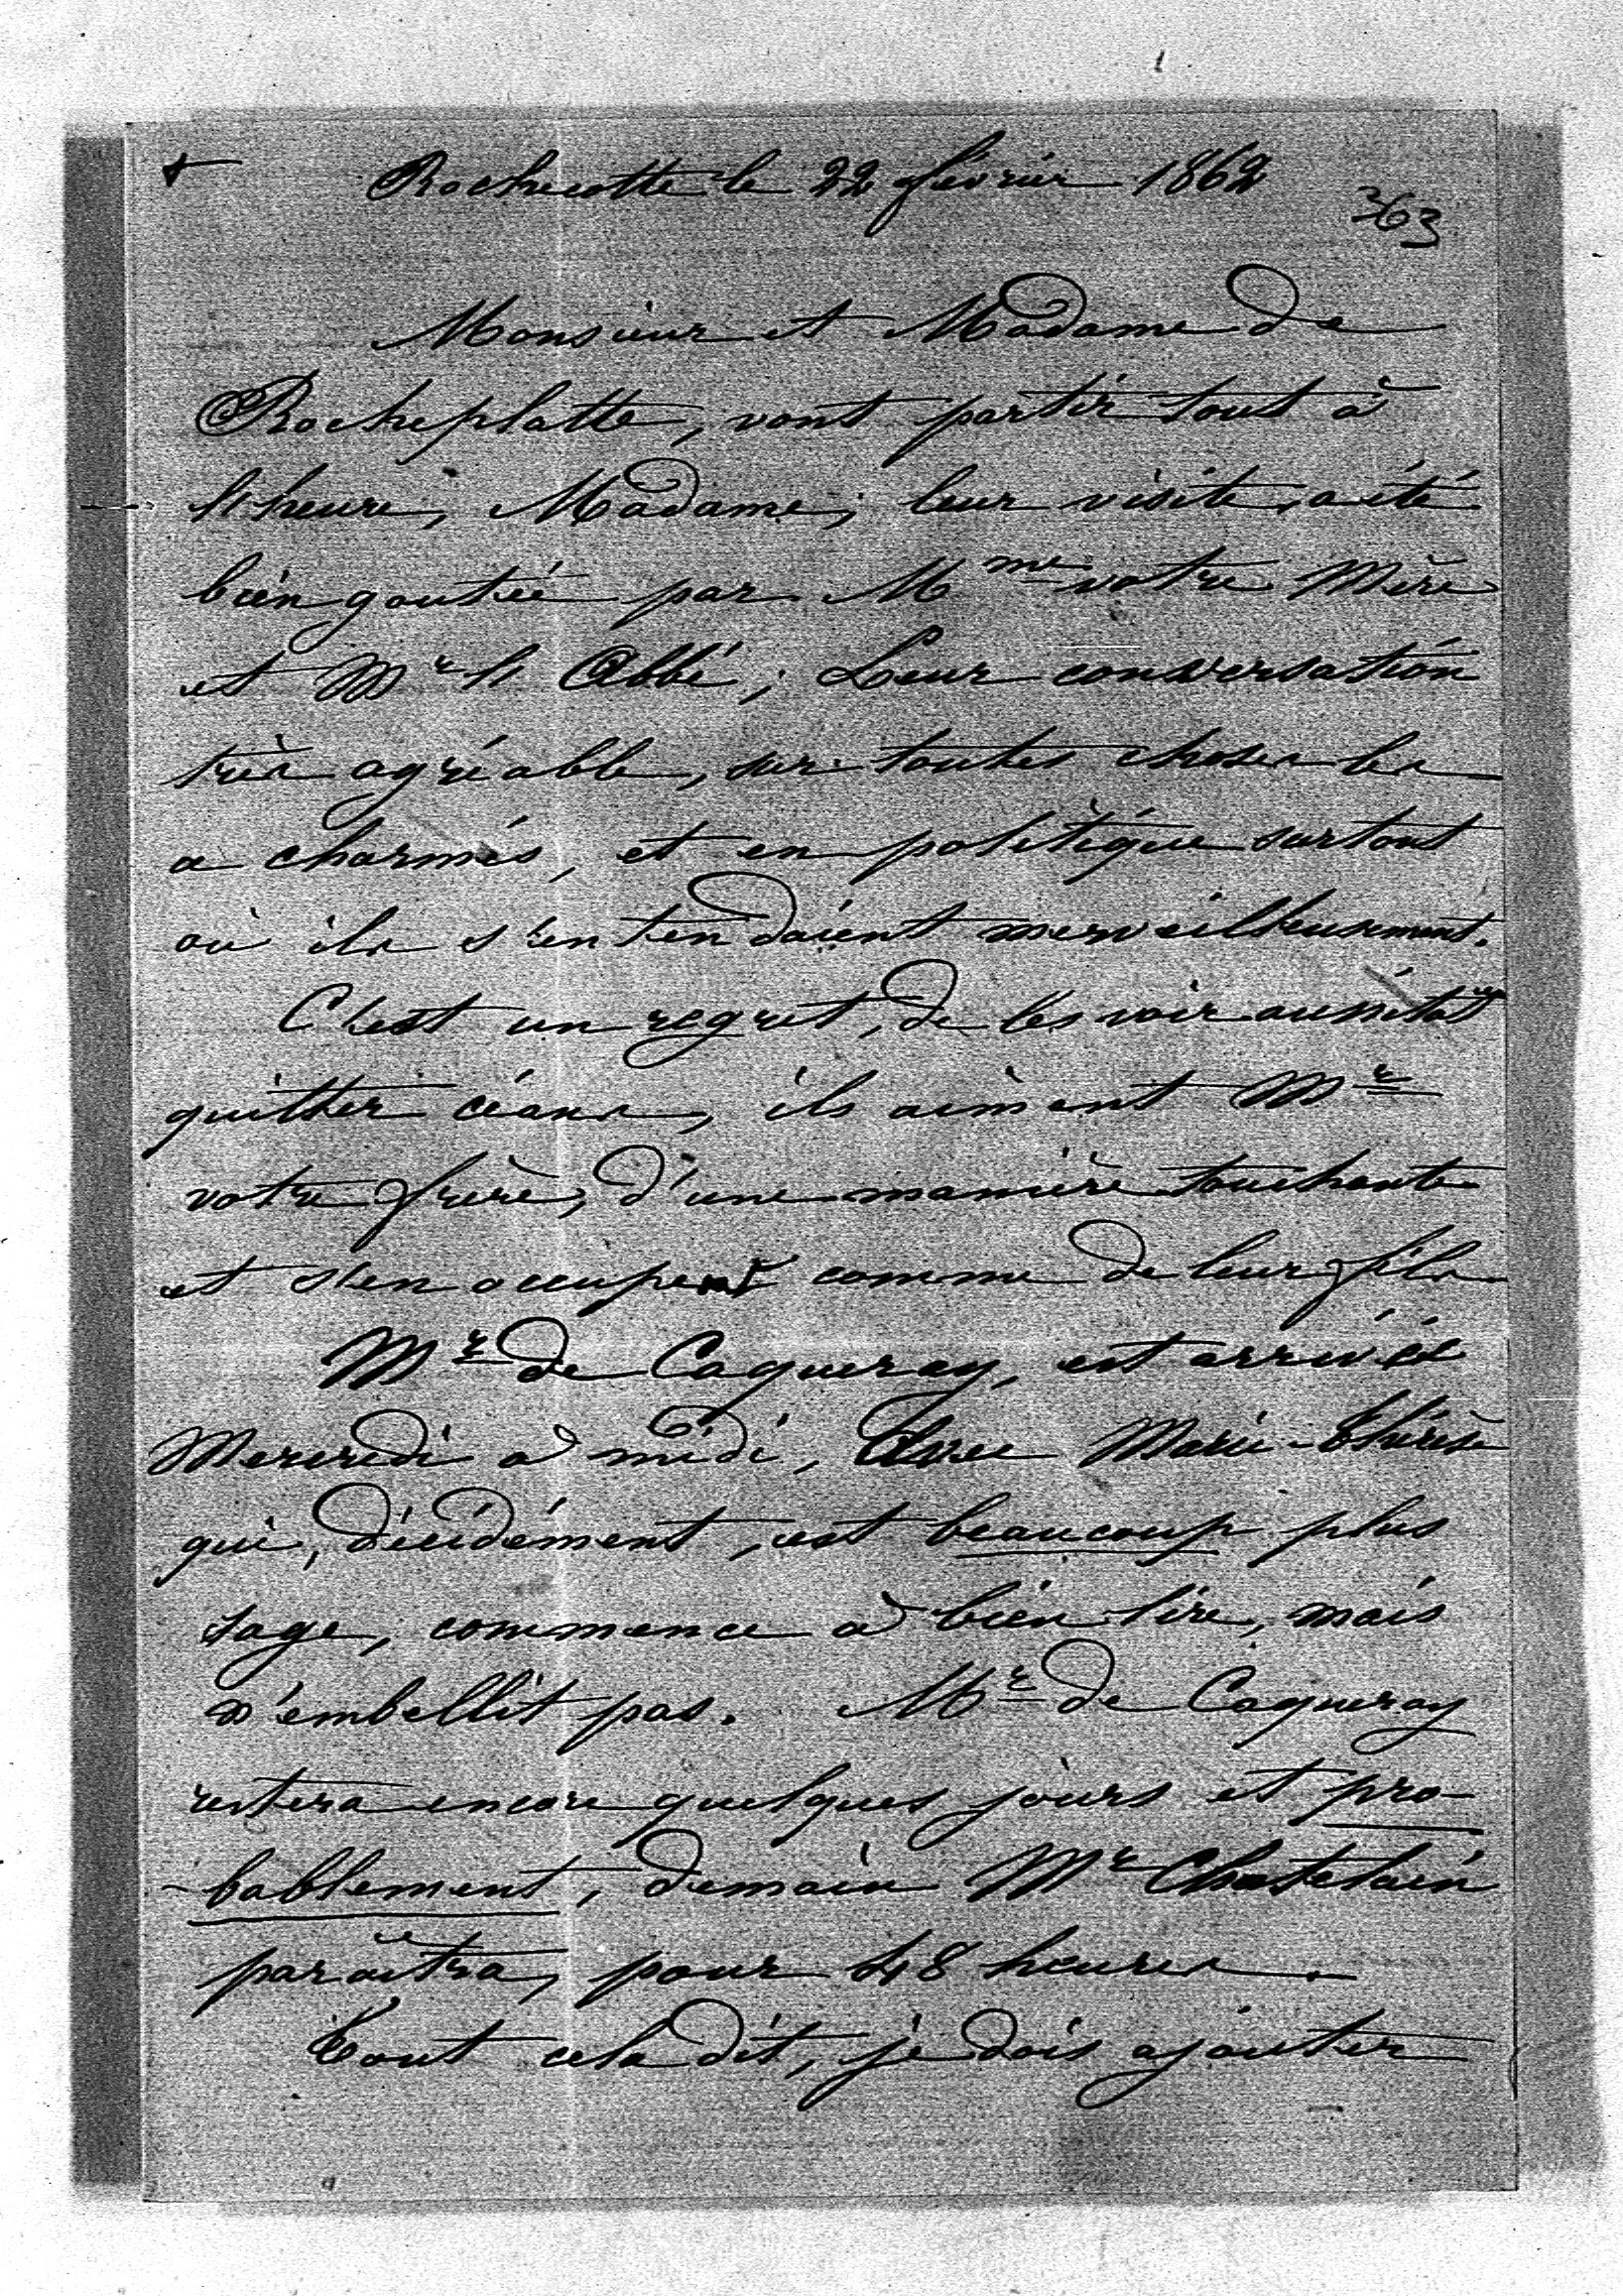 Rochecotte le 22 février 1862
363
Monsieur et Madame de
Rocheplatte, vont partir tout à
l'heure, Madame; leur visite a été
bien goutée par Mme votre Mère
et Mr l'Abbé; Leur conversation
très agréable, sur toutes choses les
a charmés, et en politique surtout
où ils s'entendaient merveilleusement.
C'est un regret, de les voir aussitôt
quitter céans, ils aiment Mr
votre frère, d'une manière touchante
et s'en occupent comme de leur fils
Mr de Caqueray, est arrivé
Mercredi à midi, Avec Marie-Thérèse
qui, décidément, est beaucoup plus
sage, commence à bien lire, mais
n'embellit pas. Mr de Caqueray
restera encore quelques jours et pro-
-bablement, demain Mr Chastelain
paraîtra, pour 48 heures.
Tout cela dit, je dois ajouter